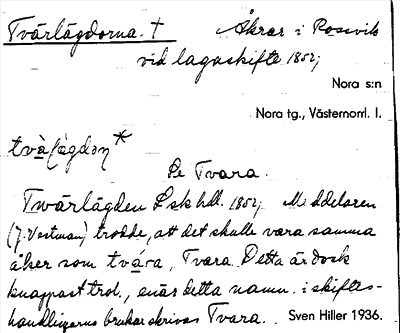 Tvärlägdorna. † Åkrar i Rossvik
vid lagaskifte 1852;
Nora s:n
Nora tg., Västernorrl. l.
Se Tvara.
Tvärlägden Lsk hdl. 1852; Meddelaren
(J. Vestman) trodde, att det skulle vara samma
åker som tvára, Tvara. Detta är dock
knappast trol., enär detta namn i skiftes-
handlingarna brukar skrivas Tvara. Sven Hiller 1936.